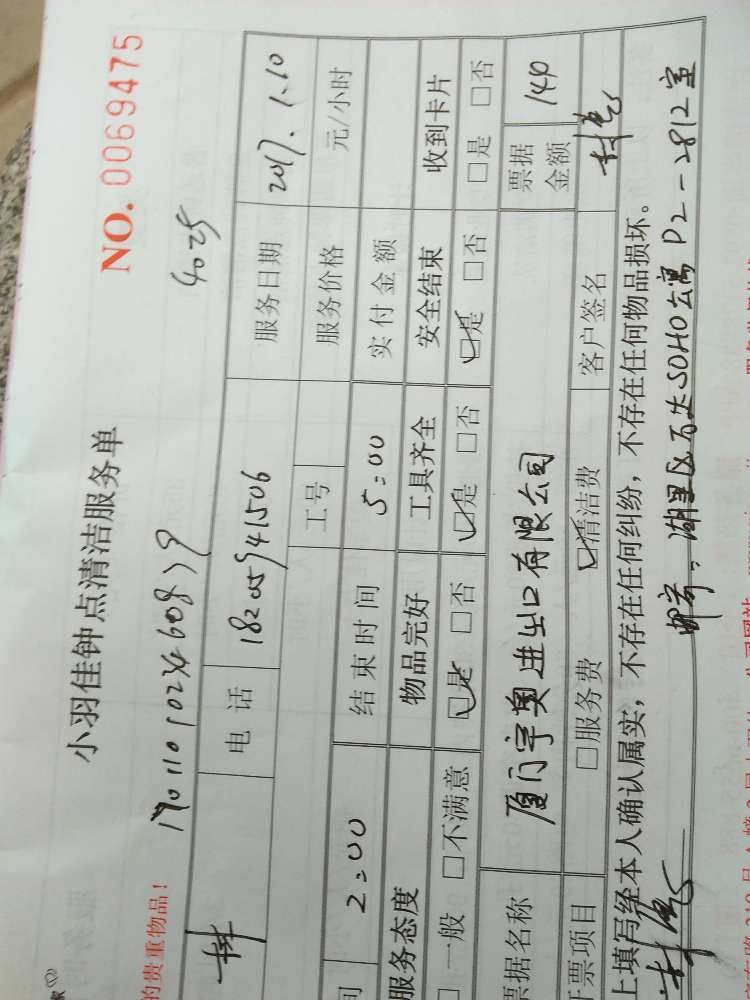 小羽佳钟点清洁服务单
NO. 0069475
的贵重物品！
4025
林 电话 18205941506 服务日期 2017.1.10
工号 服务价格 元/小时
间 2:00 结束时间 5:00 实付金额
服务态度 物品完好 工具齐全 安全结束 收到卡片
□一般 □不满意 ☑是 □否 ☑是 □否 ☑是 □否 □是 □否
票据名称 厦门宇奥进出口有限公司 票据金额 140
开票项目 □服务费 ☑清洁费 客户签名
上填写经本人确认属实，不存在任何纠纷，不存在任何物品损坏。
邮寄：湖里区万达SOHO公寓 D2-2812室